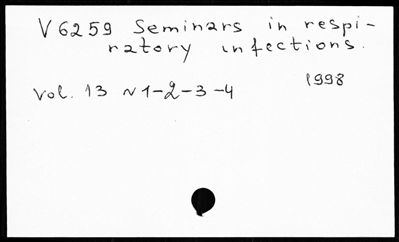 V6259 Seminars in respi-
ratory infections.
1998
Vol. 13 N1-2-3-4